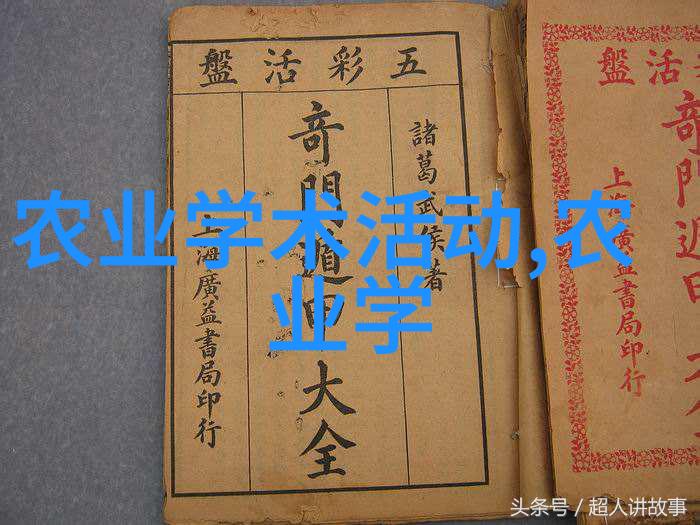 五彩活盤
諸葛武侯著
奇門遁甲大全
上海廣益書局印行
活盤
奇門遁甲
上海廣益書局印行
农业学术活动,农
业学
头条号 / 超人讲故事